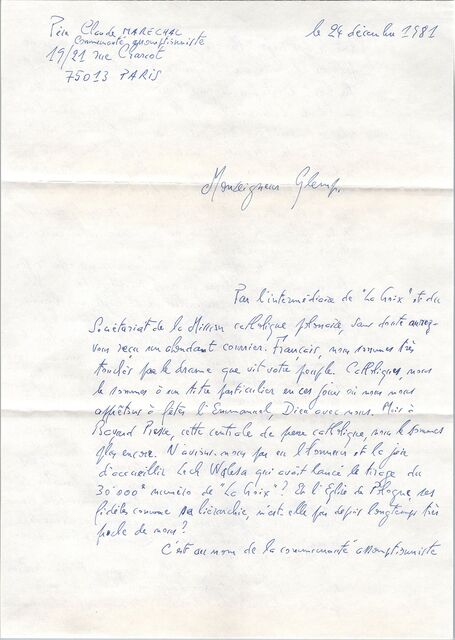 Père Claude MARÉCHAL
Communauté assomptionniste
19/21 rue Charcot
75013 PARIS
le 24 décembre 1981
Monseigneur Glemp,
Par l'intermédiaire de "La Croix" et du
Secrétariat de la Mission catholique polonaise, sans doute aurez-
vous reçu un abondant courrier. Français, nous sommes très
touchés par le drame que vit votre peuple. Catholiques, nous
le sommes à un titre particulier en ces jours où nous nous
apprêtons à fêter l'Emmanuel, Dieu avec nous. Mais à
Bayard Presse, cette centrale de presse catholique, nous le sommes
plus encore. N'avions-nous pas eu l'honneur et la joie
d'accueillir Lech Walesa qui avait lancé le tirage du
30 000e numéro de "La Croix"? Et l'Eglise de Pologne, ses
fidèles comme sa hiérarchie, n'est-elle pas depuis longtemps très
proche de nous?
C'est au nom de la communauté assomptionniste